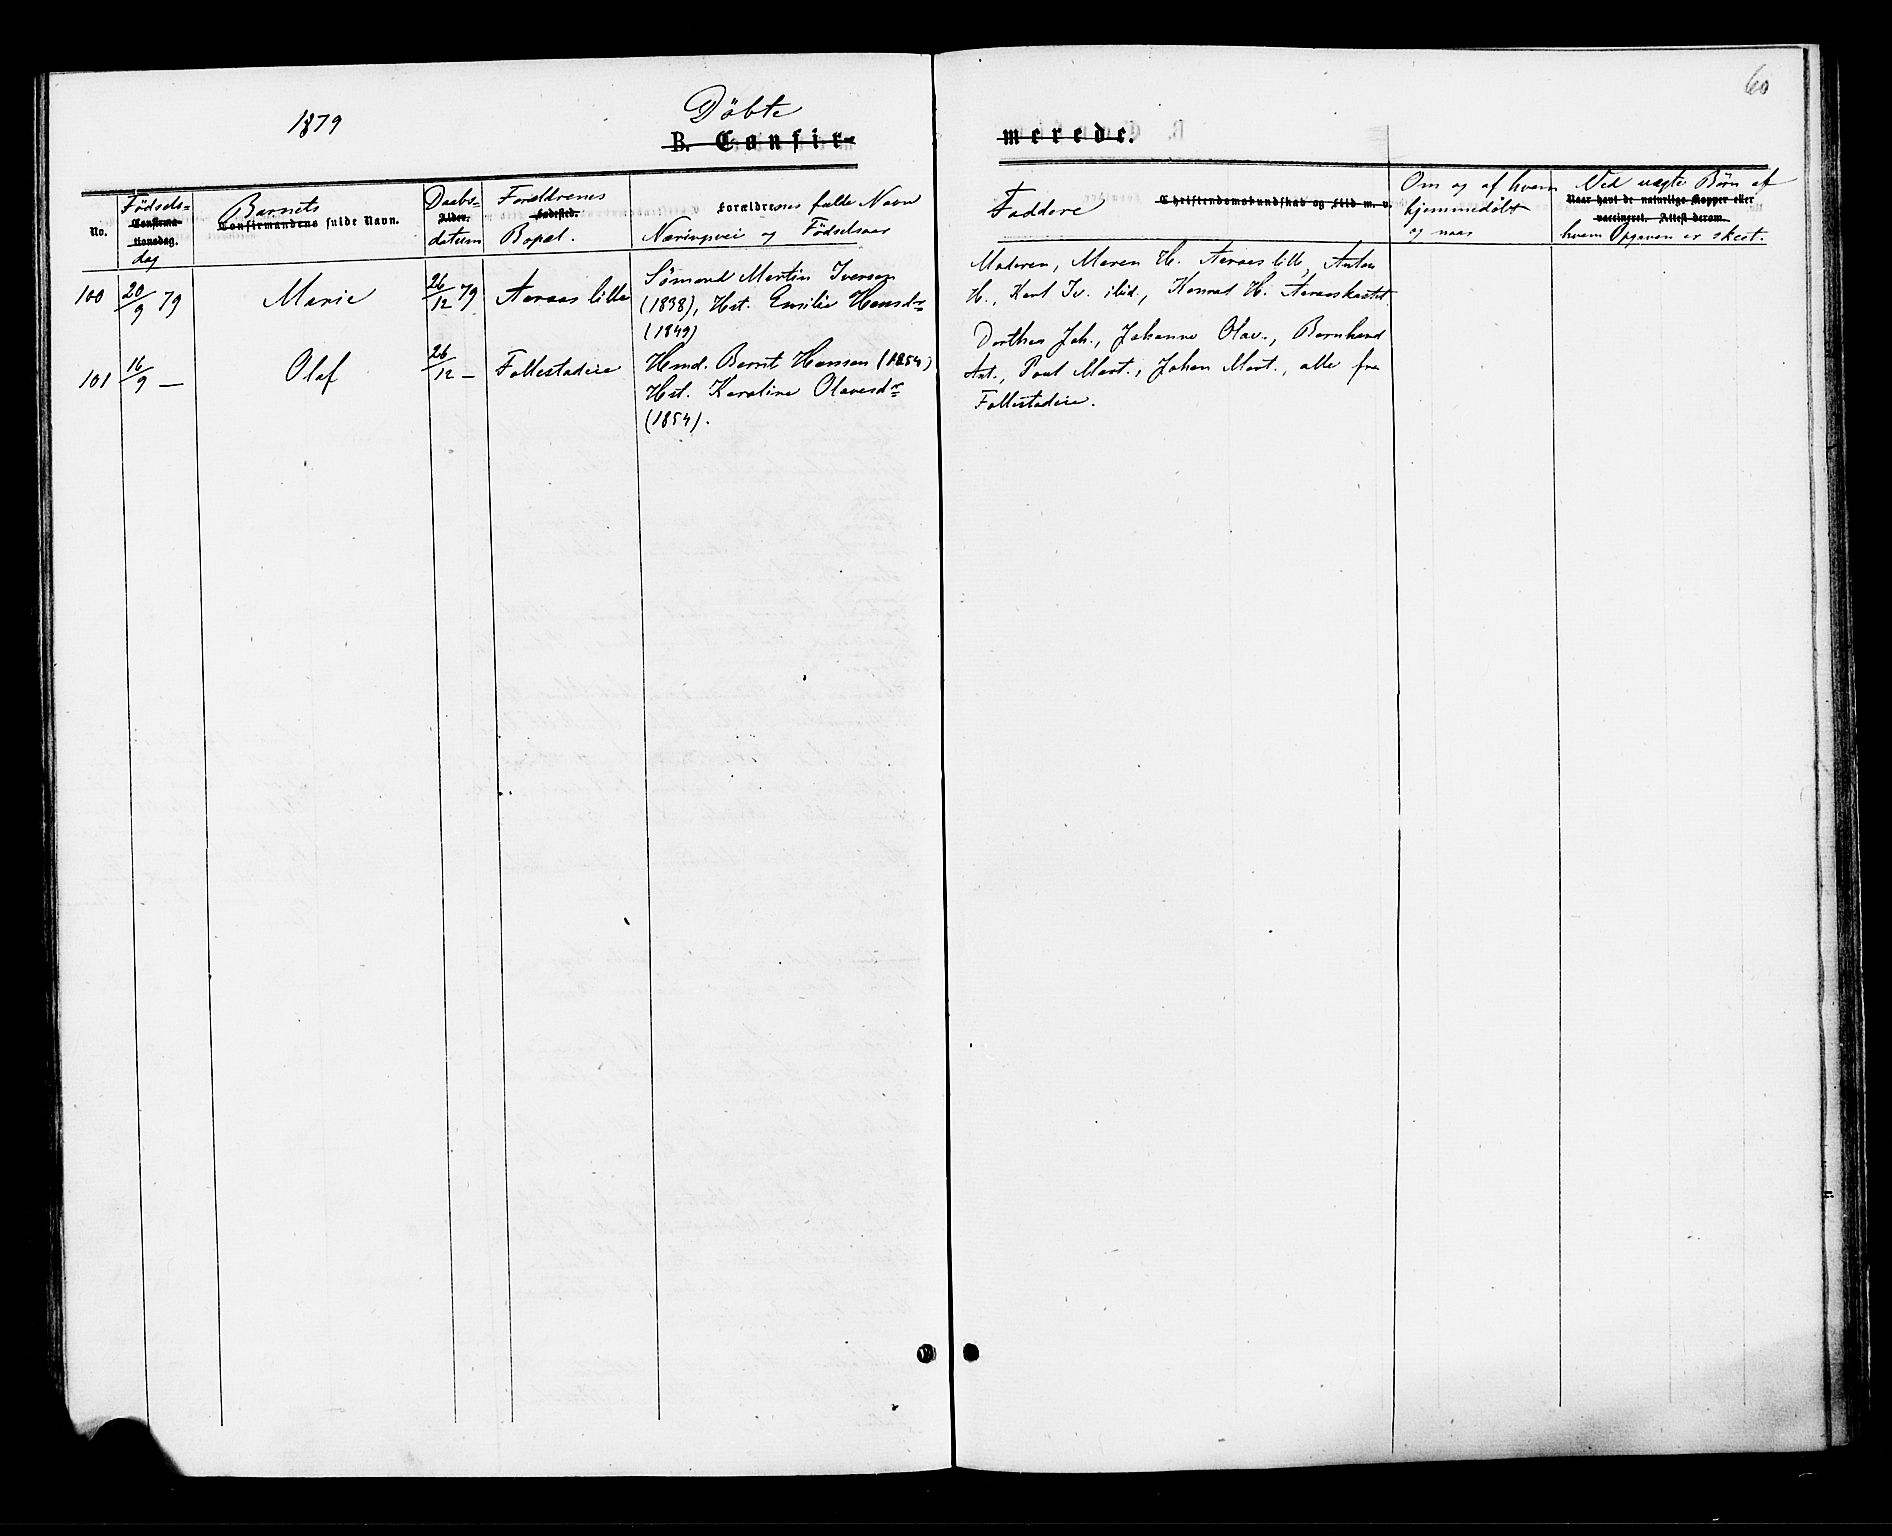 60
1879
Döbte
B. Confir-
merede.
No.
Födsels-
Confirma-
tionsdag.
dag
Barnets
Confirmandens fulde Navn.
Daabs-
Alder.
datum
Foreldrenes
Födested.
Bopæl.
Forældrenes fulle Navn
Næringsvei og Födselsaar
Faddere
Christendomskundskab og Flid m. v.
Om og af hvem
hjemmedöbt
og naar
Ved uægte Børn af
Naar havt de naturlige Kopper eller
vaccineret. Attest derom.
hvem Opgaven er skeet.
100
20/9 79
Marie
26/12 79
Aaraas lille
Sømand Martin Iversen
(1838), Hst. Emilie Hansdr
(1849)
Moderen, Maren H. Aaraas lille, Anton
H., Karl Iv. ibid., Konrad H. Aaraaskastet
101
16/9 —
Olaf
26/12 —
Follestadeie
Hmd. Bernt Hansen (1854)
Hst. Karoline Olavesdr
(1854).
Dorthea Joh., Johanne Olav., Bernhard
Ant., Paul Mart., Johan Mart., alle fra
Follestadeie.